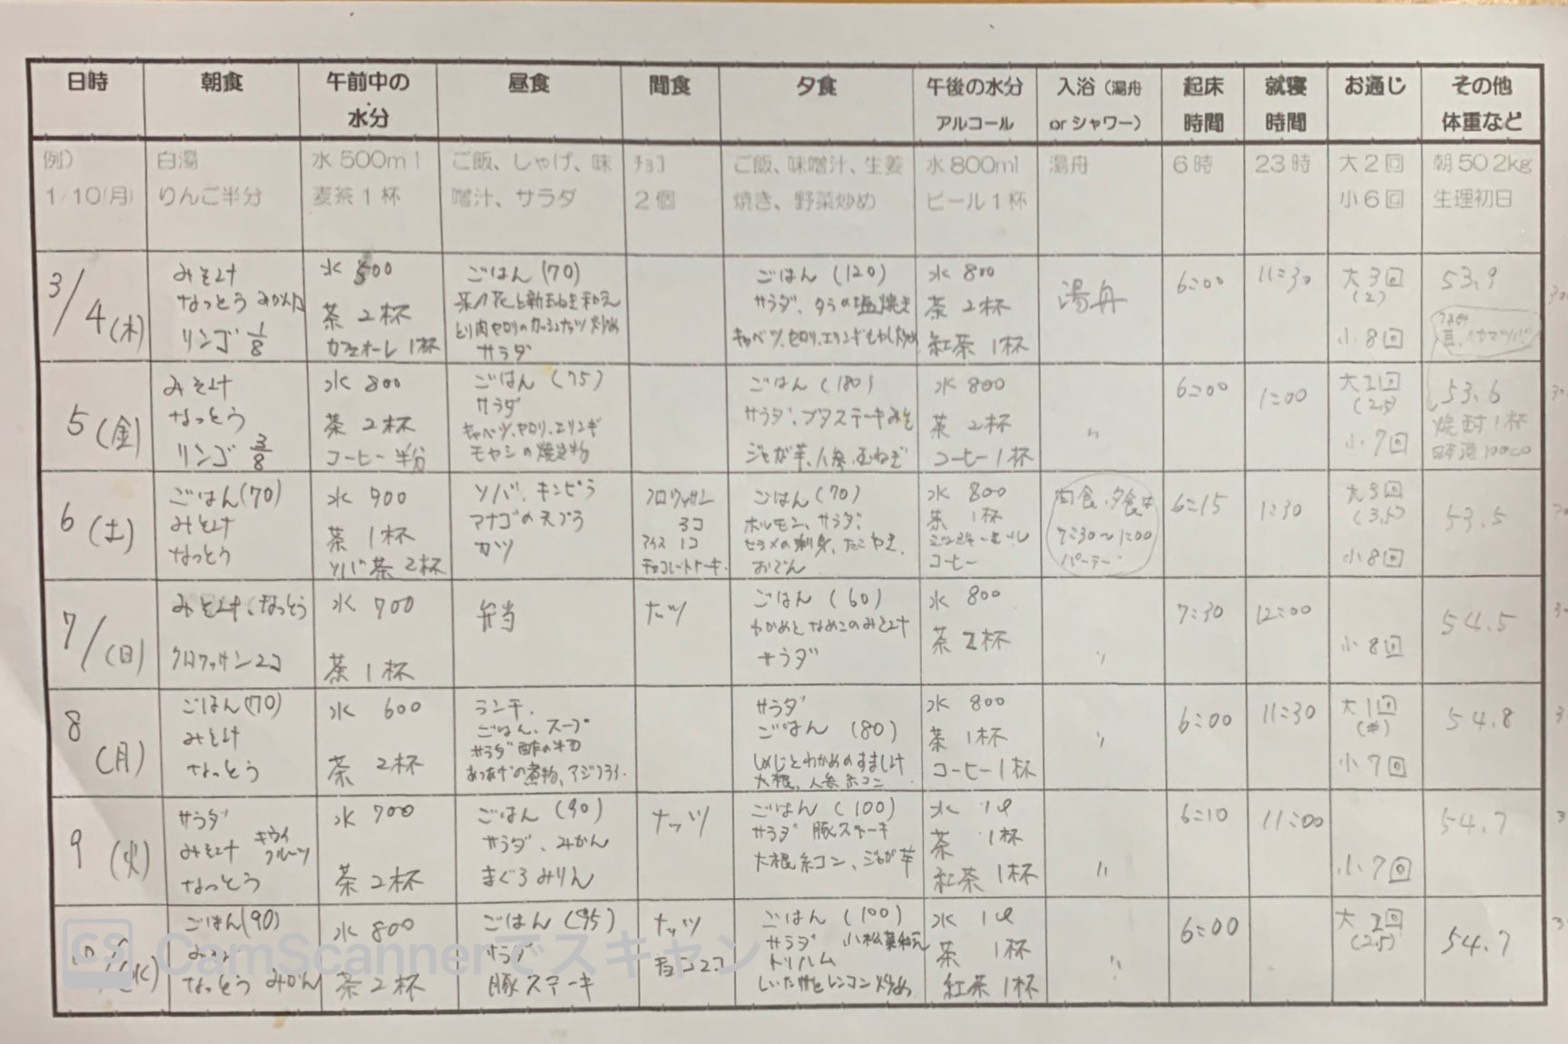 日時 朝食 午前中の水分 昼食 間食 夕食 午後の水分アルコール 入浴（湯舟orシャワー） 起床時間 就寝時間 お通じ その他体重など
例）
1/10(月)
白湯
りんご半分
水500ml
麦茶1杯
ご飯、しゃけ、味
噌汁、サラダ
ﾁｮｺ
2個
ご飯、味噌汁、生姜
焼き、野菜炒め
水800ml
ビール1杯
湯舟
6時
23時
大2回
小6回
朝50.2kg
生理初日
3/4(木)
みそ汁
なっとう
リンゴ 1/8
水 500
茶 2杯
カフェオーレ 1杯
ごはん (70)
菜の花と新玉ねぎ和え
とり肉セロリのカシュナッツ炒め
サラダ
ごはん (120)
サラダ、タラの塩焼き
キャベツ、セロリ、エリンギもやし炒め
水 800
茶 2杯
紅茶 1杯
湯舟
6:00
11:30
大3回
(2)
小8回
53.9
5(金)
みそ汁
なっとう
リンゴ 3/8
水 800
茶 2杯
コーヒー 半分
ごはん (75)
サラダ
キャベツ、セロリ、エリンギ
モヤシの焼き物
ごはん (180)
サラダ、ブタステーキみそ
ジャが芋、人参、玉ねぎ
水 800
茶 2杯
コーヒー 1杯
〃
6:00
1:00
大2回
(2.5)
小7回
53.6
焼酎1杯
6(土)
ごはん(70)
みそ汁
なっとう
水 900
茶 1杯
ソバ茶 2杯
ソバ、キンピラ
アナゴの天プラ
カツ
クロワッサン
3コ
アイス 1コ
チョコレートケーキ
ごはん (70)
ホルモン、サラダ、
ヒラメの刺身、たこやき、
おでん
水 800
茶 1杯
コーヒー
間食・夕食は
7:30～1:00
パーテー
6:15
1:30
大3回
(3.5)
小8回
53.5
7/(日)
みそ汁、なっとう
クロワッサン2コ
水 700
茶 1杯
弁当
ナッツ
ごはん (60)
わかめとなめこのみそ汁
サラダ
水 800
茶 2杯
〃
7:30
12:00
小8回
54.5
8(月)
ごはん(70)
みそ汁
なっとう
水 600
茶 2杯
ランチ.
ごはん、スープ
サラダ 酢の物
あつあげの煮物、アジフライ.
サラダ
ごはん (80)
しめじとわかめのすまし汁
大根、人参、糸コン
水 800
茶 1杯
コーヒー1杯
〃
6:00
11:30
大1回
小7回
54.8
9(火)
サラダ
みそ汁
キウイ
フルーツ
なっとう
水 700
茶 2杯
ごはん (90)
サラダ、みかん
まぐろみりん
ナッツ
ごはん (100)
サラダ 豚ステーキ
大根糸コン、ジャが芋
水 1ℓ
茶 1杯
紅茶 1杯
〃
6:10
11:00
小7回
54.7
10(水)
ごはん(90)
みそ
なっとう みかん
水 800
茶 2杯
ごはん (95)
サラダ
豚ステーキ
ナッツ
チョコ2コ
ごはん (100)
サラダ 小松菜和え
トリハム
しいたけとレンコン炒め
水 1ℓ
茶 1杯
紅茶 1杯
〃
6:00
大2回
(2.5)
54.7
CS CamScannerでスキャン